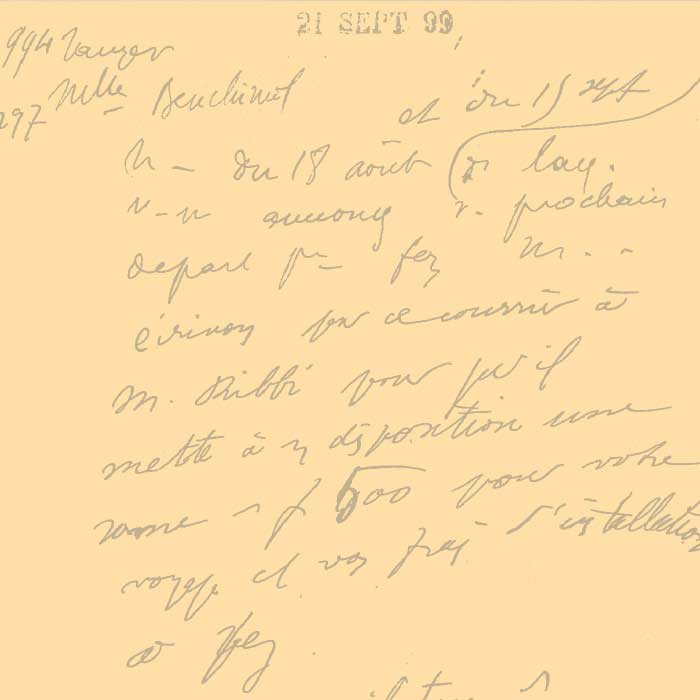 21 SEPT 99
994 Tanger
297 Mlle Benchimol
et du 15 sept
N - du 18 août
v-n annonç v. prochain
départ pr fez
écrivons par ce courrier à
M. Ribbi pour qu'il
mette à disposition une
somme f 500 pour votre
voyage et vos frais d'installation
à Fez.